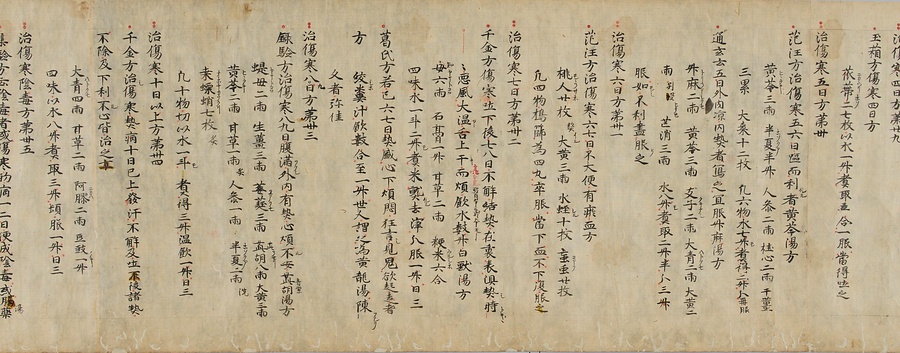 治傷寒四日方第廿九
玉葙方傷寒四日方
苽蔕二七枚以水一升煮取五合一服當得吐之
治傷寒五日方第卅
范汪方治傷寒五六日嘔而利者黃芩湯方
黃芩三兩 半夏半升 人参二兩 桂心二兩 干薑
三累 大棗十二枚 凡六物水七升煮得二升分再服
通玄去五日内熱者宜服升麻湯方
升麻二兩 黃芩三兩 支子二兩 大青二兩 大黃二
兩 芒消三兩 水升煮取二升半分三升
服如不利盡服之
治傷寒六日方第卅一
范汪方治傷寒六七日不大便有瘀血方
桃人廿枚 大黃三兩 水蛭十枚 虻虫廿枚
凡四物擣篩為四丸卒服當下血不下復服之
治傷寒七日方第卅二
千金方傷寒吐下後七八日不解結熱在裏表俱熱時
惡風大温舌上干而煩飲水數升白獸湯方
母六兩 石膏一升 甘草二兩 粳米六合
四味水一斗二升煮米熟去滓分服一升日三
葛氏方若已六七日熱盛心下煩悶狂言見鬼欲起走者
絞糞汁飲數合至一升世人謂之為黃龍湯陳
久者弥佳
方
治傷寒八九日方第卅三
錄驗方治傷寒八九日腹滿外内有熱心煩不安茈胡湯方
知母二兩 生薑三兩 萎蕤三兩 茈胡八兩 大黃三兩
黃芩一兩 甘草一兩 人参一兩 半夏一兩洗
桑螵蛸七枚
凡十物切以水一斗煮得三升温飲一升日三
治傷寒十日以上方第卅四
千金方治傷寒熱病十日已上發汗不解及吐下後諸熱
不除及下利不心督治之方
大青四兩 甘草二兩 阿膠二兩 豆豉一升
四味以水八升煮取三升煩服一升日三
治傷寒陰毒方第卅五
集驗方云陰毒者或傷寒初病一二日便成陰毒或服藥